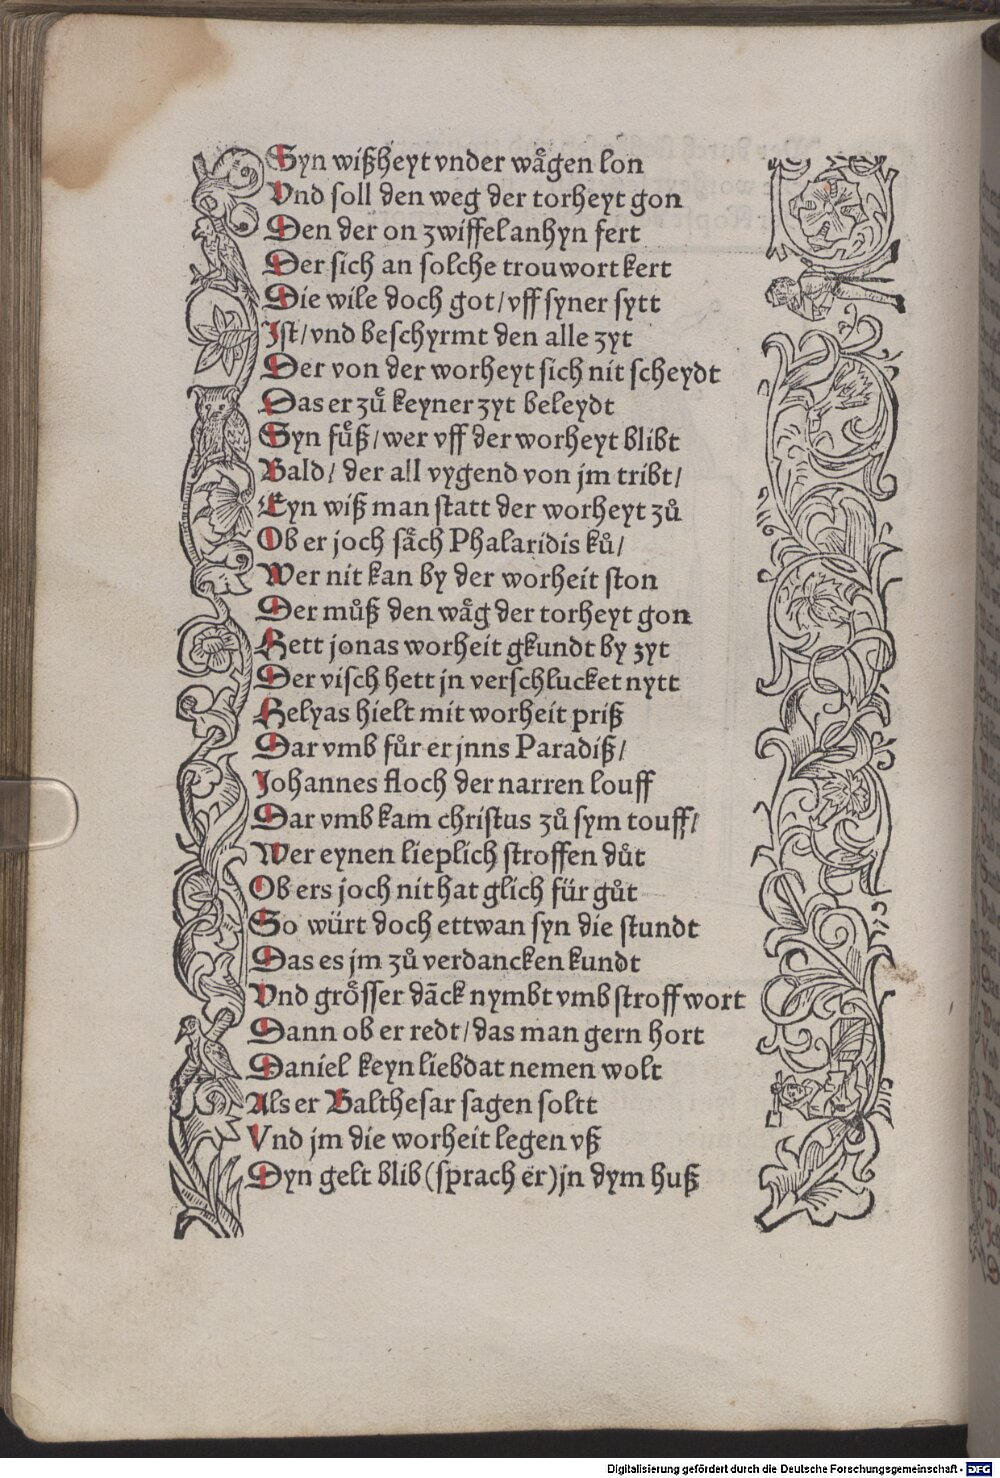 Syn wißheyt vnder waͤgen lon
Vnd soll den weg der torheyt gon
Den der on zwiffel anhyn fert
Der sich an solche trouwort kert
Die wile doch got/vff syner sytt
Ist/vnd beschyrmt den alle zyt
Der von der worheyt sich nit scheydt
Das er zuͤ keyner zyt beleydt
Syn fuͤß/wer vff der worheyt blibt
Bald/der all vygend von jm tribt/
Eyn wiß man statt der worheyt zuͦ
Ob er joch saͤch Phalaridis kuͦ/
Wer nit kan by der worheit ston
Der muͦß den waͤg der torheyt gon
Hett jonas worheit gkundt by zyt
Der visch hett jn verschlucket nytt
Helyas hielt mit worheit priß
Dar vmb fuͦr er jnns Paradiß/
Johannes floch der narren louff
Dar vmb kam christus zuͦ sym touff/
Wer eynen lieplich stroffen duͦt
Ob ers joch nit hat glich für guͦt
So würt doch ettwan syn die stundt
Das es jm zuͦ verdancken kundt
Vnd groͤsser dāck nymbt vmb stroff wort
Dann ob er redt/das man gern hort
Daniel keyn liebdat nemen wolt
Als er Balthesar sagen soltt
Vnd jm die worheit legen vß
Dyn gelt blib (sprach er) jn dym huß
Digitalisierung gefördert durch die Deutsche Forschungsgemeinschaft - DFG